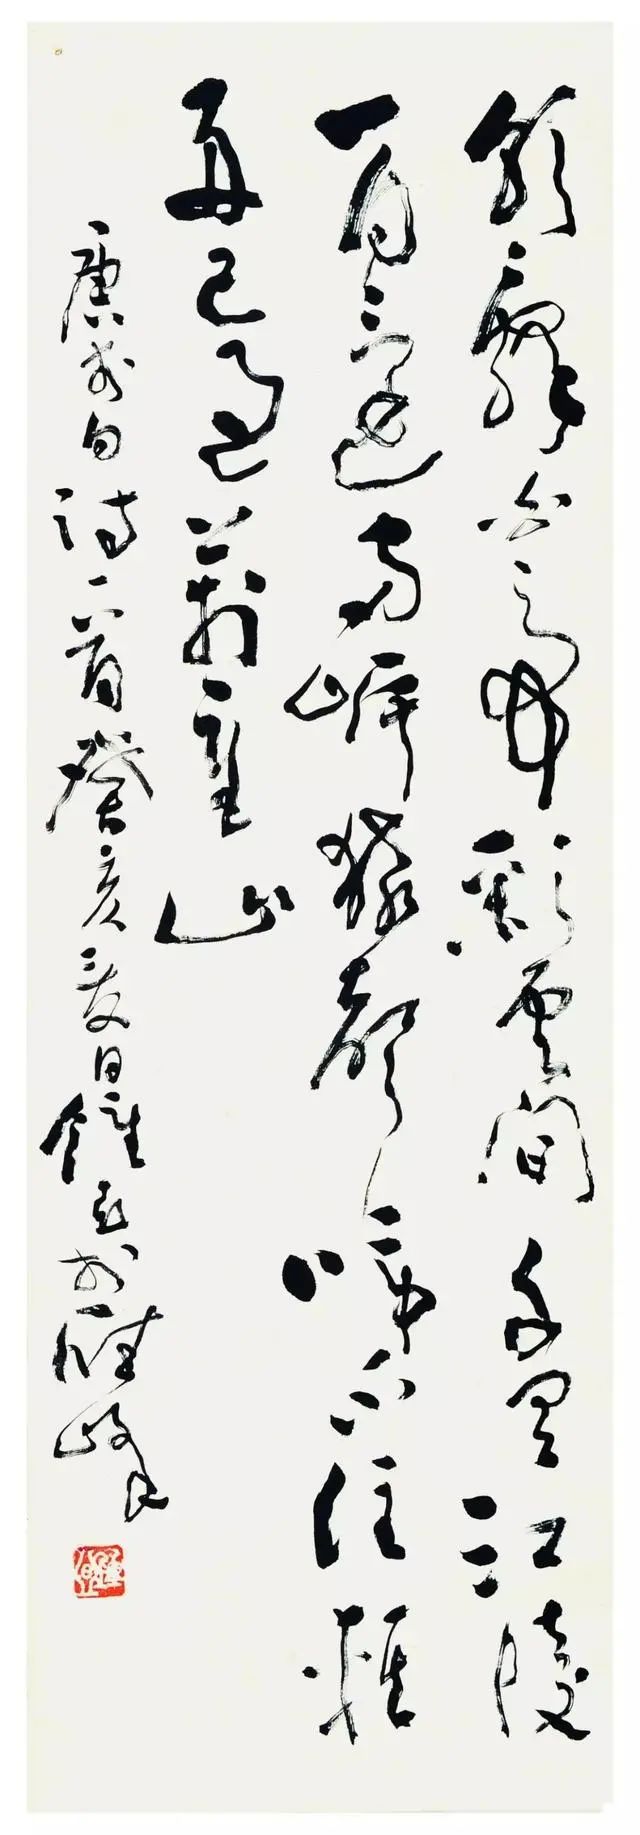 朝辭白帝彩雲間千里江陵
一日還兩岸猿聲啼不住輕
舟已過萬重山
唐李白詩一首癸亥夏日於峰